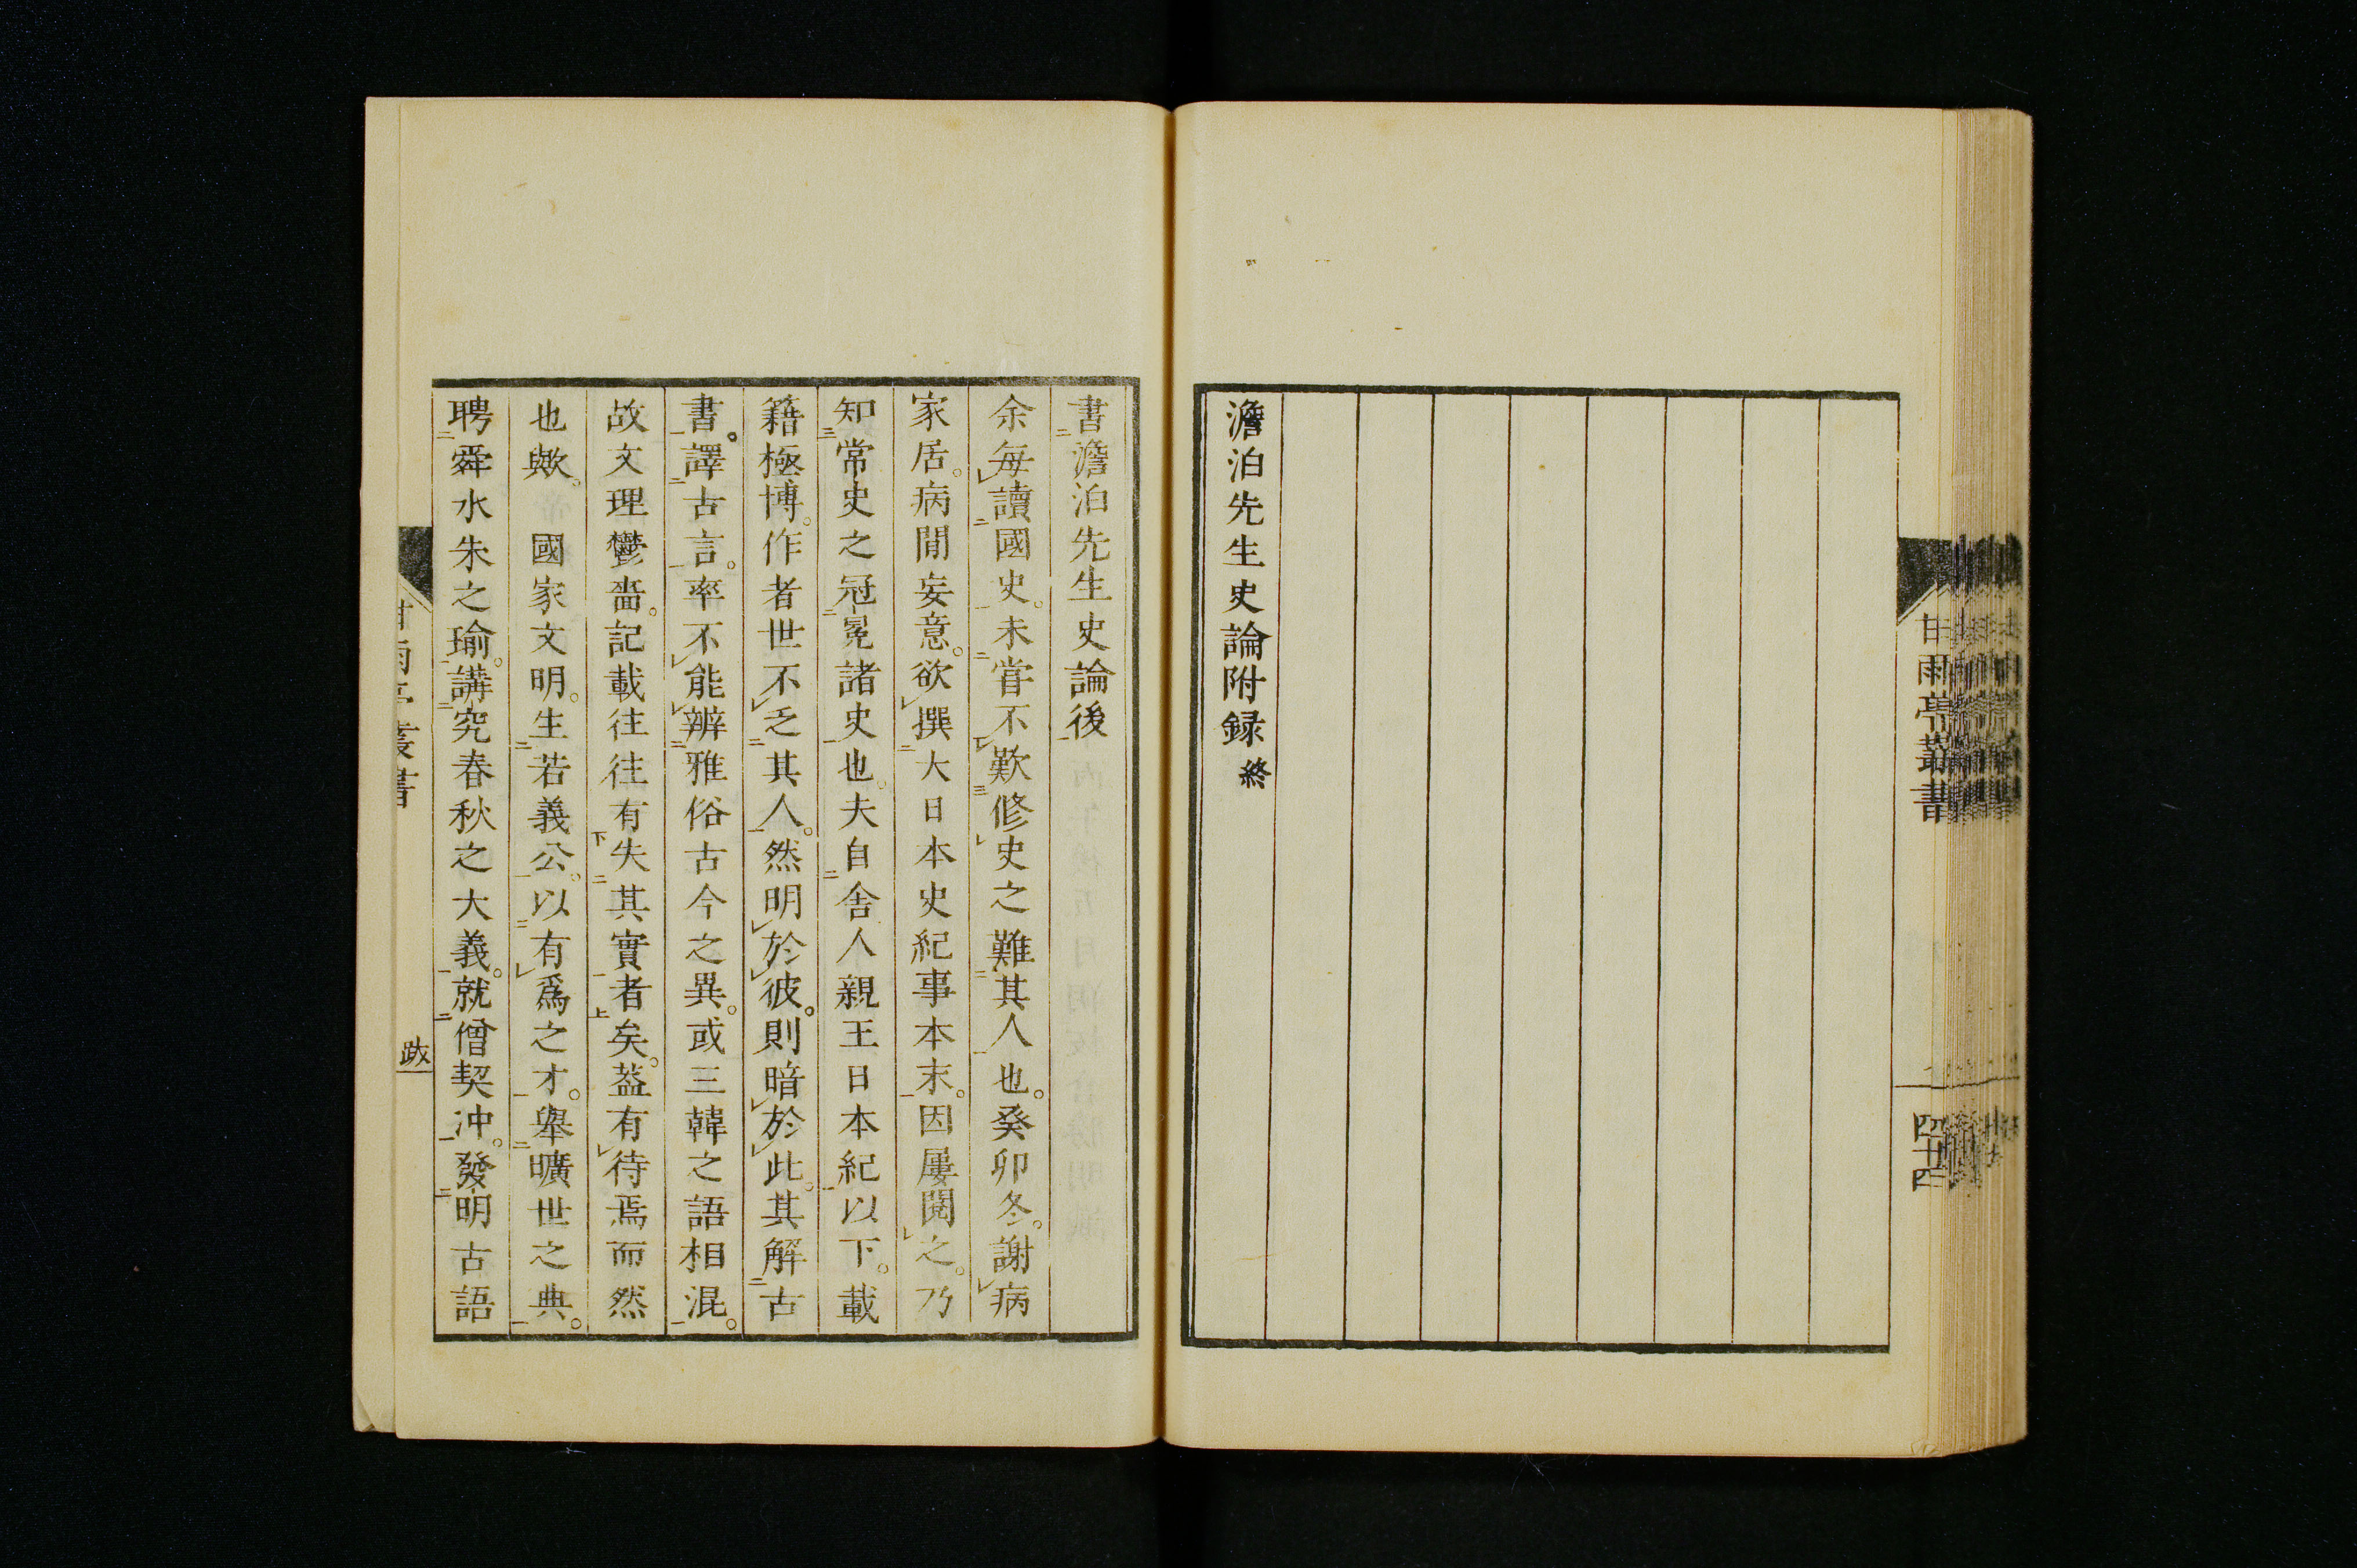 甘雨亭叢書
四十四
澹泊先生史論附録終
書澹泊先生史論後
余每讀國史。未甞不歎修史之難其人也。癸卯冬。謝病
家居。病間妄意。欲撰大日本史紀事本末。因屢閲之。乃
知常史之冠冕諸史也。夫自舎人親王日本紀以下。載
籍極博。作者世不乏其人。然明於彼。則暗於此。其解古
書。譯古言。率不能辨雅俗古今之異。或三韓之語相混。
故文理鬱啬。記載往往有失其實者矣。葢有待焉而然
也歟。 國家文明。生若義公。以有爲之才。舉曠世之典。
聘舜水朱之瑜。講究春秋之大義。就僧契冲。發明古語
甘雨亭叢書
跋